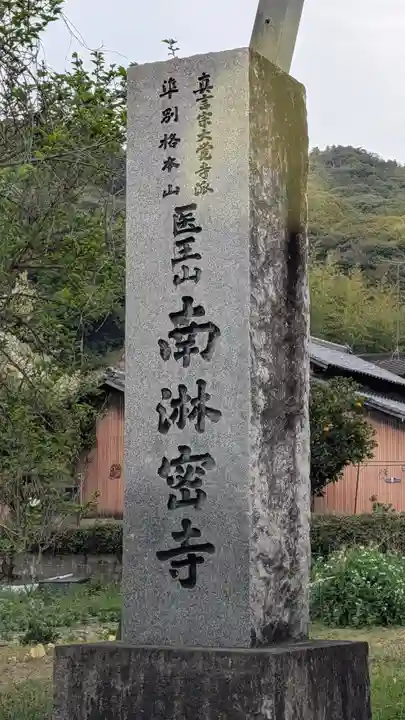 真言宗大覚寺派
準別格本山
医王山
南淋密寺